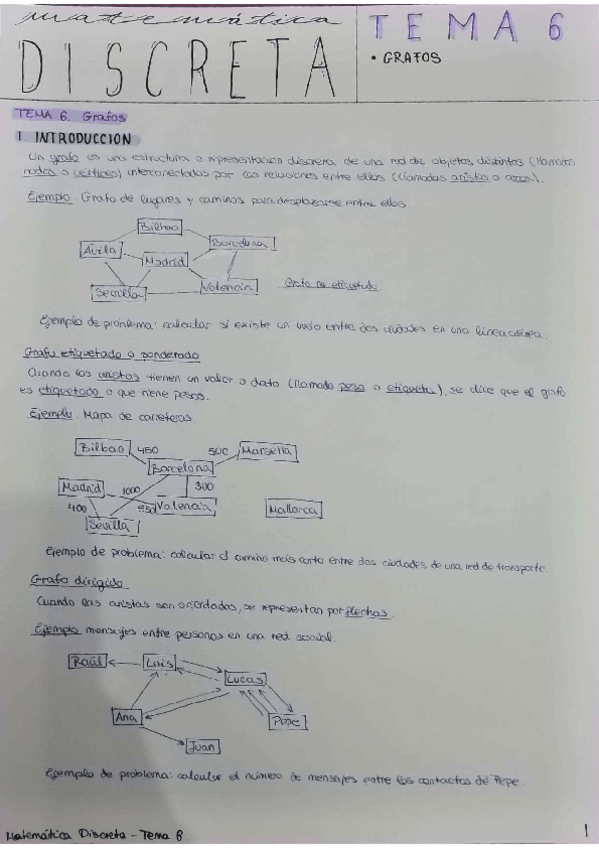 matemática
DISCRETA
TEMA 6
• GRAFOS
TEMA 6. Grafos
1 INTRODUCCION
Un grafo es una estructura o representación discreta de una red de objetos distintos (llamados
nodos o vértices) interconectados por las relaciones entre ellos (llamadas aristas o arcos).
Ejemplo. Grafo de lugares y caminos para desplazarse entre ellos.
Bilbao
Ávila
Barcelona
Madrid
Sevilla
Valencia
Grafo no etiquetado
Ejemplo de problema: calcular si existe un vuelo entre dos ciudades en una línea aérea.
Grafo etiquetado o ponderado
Cuando las aristas tienen un valor o dato (llamado peso o etiqueta), se dice que el grafo
es etiquetado o que tiene pesos.
Ejemplo. Mapa de carreteras
Bilbao 450
500 Marsella
Barcelona
Madrid 1000
300
400
650 Valencia
Mallorca
Sevilla
Ejemplo de problema: calcular el camino más corto entre dos ciudades de una red de transporte
Grafo dirigido
Cuando las aristas son orientadas, se representan por flechas.
Ejemplo mensajes entre personas en una red social.
Raúl
Luis
Lucas
Ana
Pepe
Juan
Ejemplo de problema: calcular el número de mensajes entre los contactos de Pepe.
Matemática Discreta - Tema 6
1